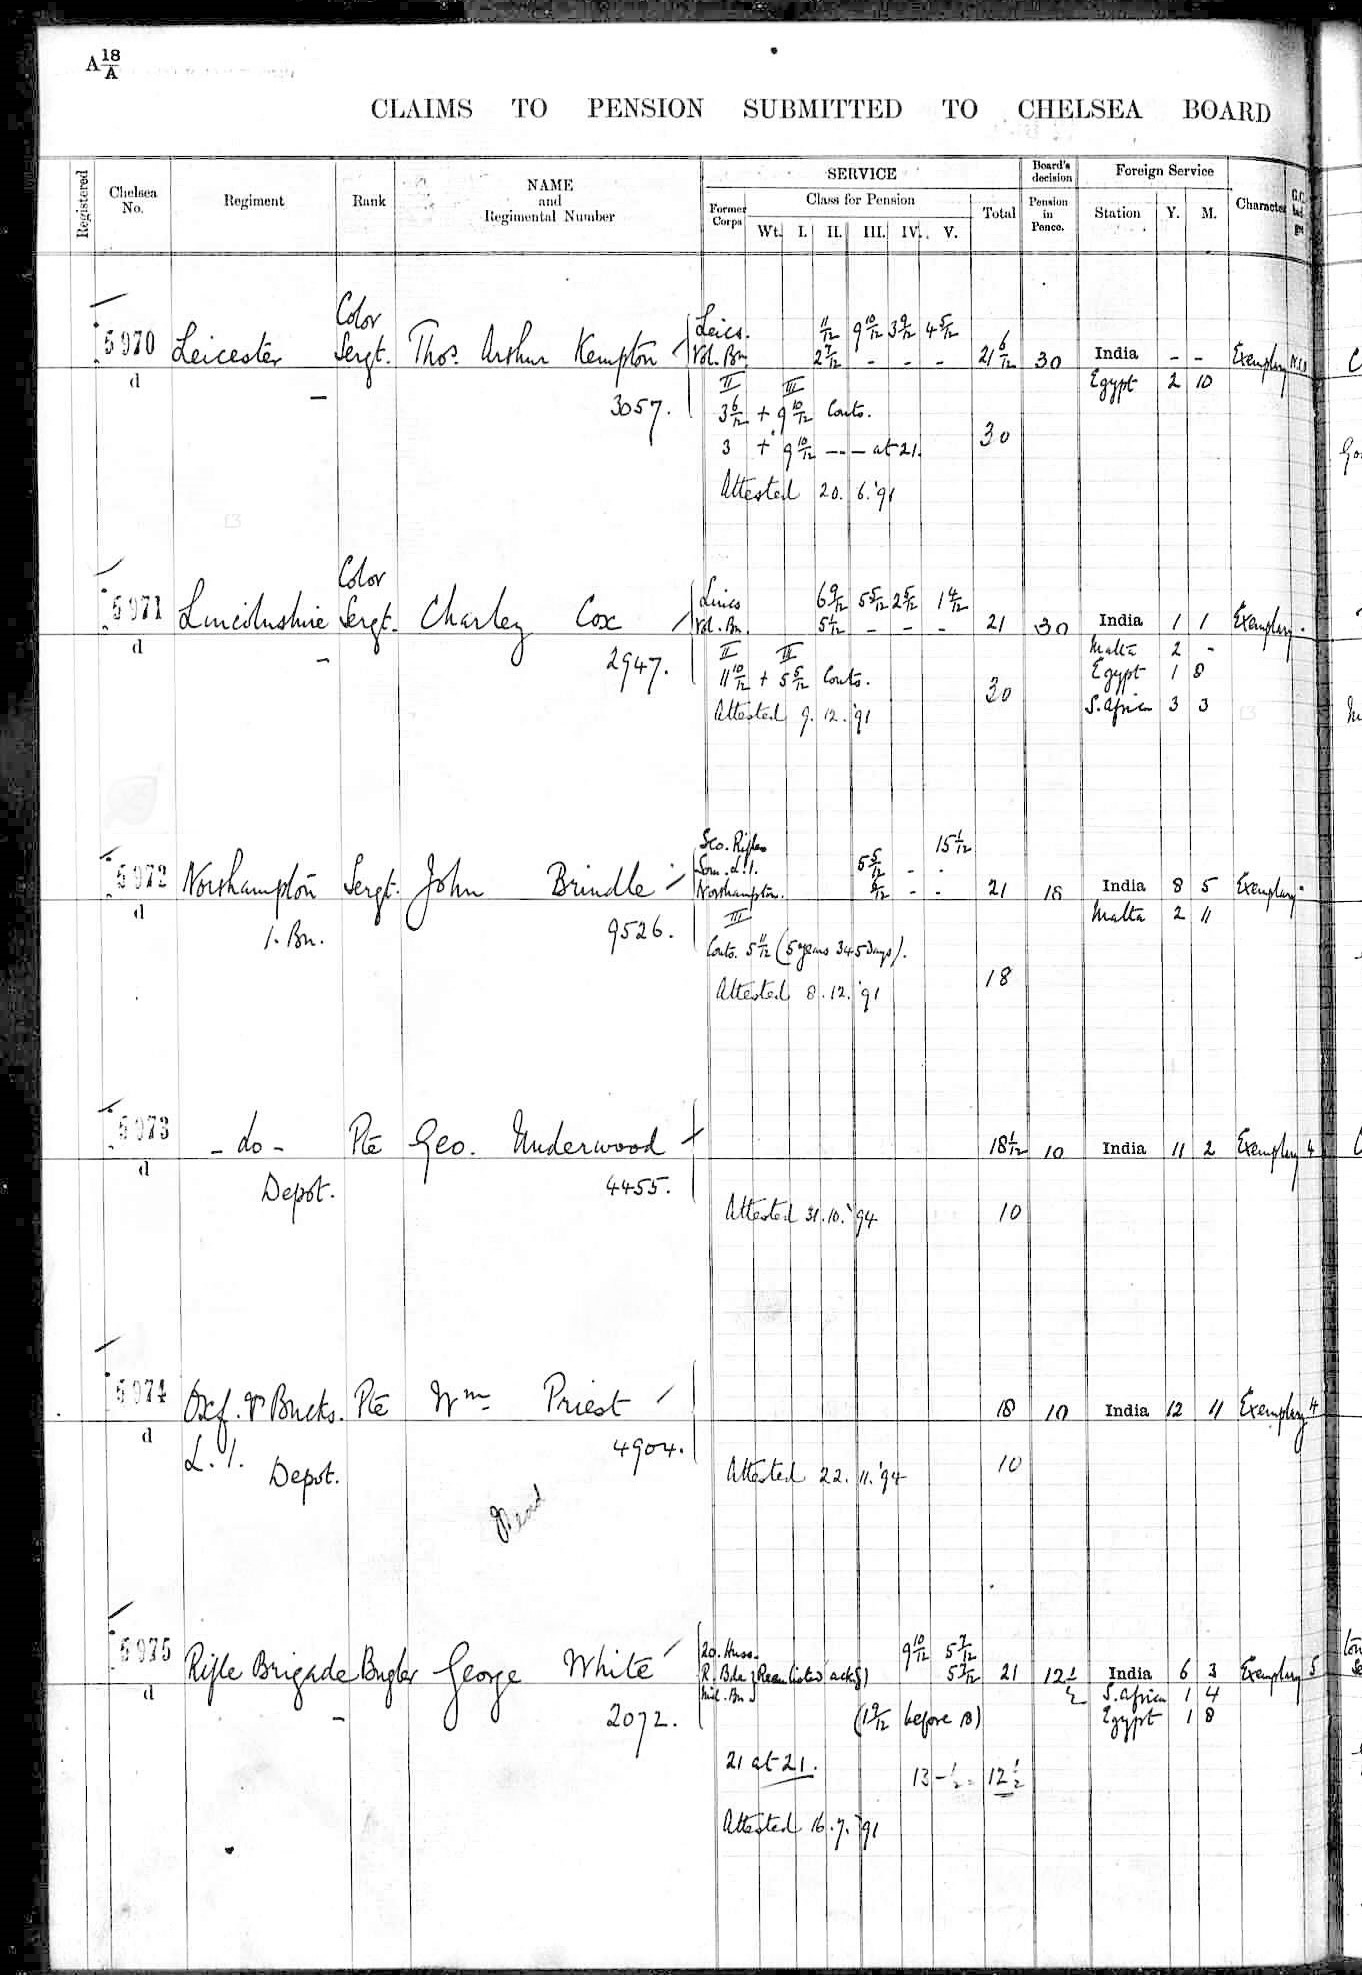 A 18/A
CLAIMS TO PENSION SUBMITTED TO CHELSEA BOARD
Registered
Chelsea No.
Regiment
Rank
NAME and Regimental Number
SERVICE
Former Corps
Class for Pension
Wt. I. II. III. IV. V.
Total
Board's decision
Pension in Pence.
Foreign Service
Station Y. M.
Character
G.C. bad ges
Color
5970 Leicester Sergt. Thos. Arthur Kempton
d
3057.
Leics. 11/12 9 10/12 3 9/12 4 5/12
Vol. Bn. 2 7/12 - - - 21 6/12 30 India - - Exemplary
Egypt 2 10
II III
3 6/12 + 9 10/12 Conts.
3 + 9 10/12 --- at 21. 30
Attested 20. 6. '91
Color
5971 Lincolnshire Sergt. Charley Cox
d
2947.
Lincs 6 9/12 5 5/12 2 5/12 1 4/12
Vol. Bn. 5 1/12 - - - 21 30 India 1 1 Exemplary.
Malta 2 -
Egypt 1 8
S. Africa 3 3
II III
11 10/12 + 5 5/12 Conts. 30
Attested 9. 12. '91
5972 Northampton Sergt. John Brindle
d
1. Bn. 9526.
Sco. Rifles 15 1/12
Som. L.I. 5 5/12 - -
Northampton. 6/12 - - 21 18 India 8 5 Exemplary
Malta 2 11
III
Conts. 5 11/12 (5 years 345 Days). 18
Attested 8. 12. '91
5973 - do - Pte Geo. Underwood
d
Depot. 4455.
18 1/12 10 India 11 2 Exemplary 4
Attested 31. 10. '94 10
5974 Oxf. & Bucks. Pte Wm Priest
d
L. I. Depot. 4904.
18 10 India 12 11 Exemplary 4
Attested 22. 11. '94 10
Dead
5975 Rifle Brigade Bugler George White
d
2072.
20. Huss. 9 10/12 5 7/12
R. Bde (Reenlisted ackd) 5 7/12 21 12 1/2 India 6 3 Exemplary 5
Mil. Bn. S. Africa 1 4
(1 9/12 before 18) Egypt 1 8
21 at 21. 13 - 1/2 = 12 1/2
Attested 16. 7. '91